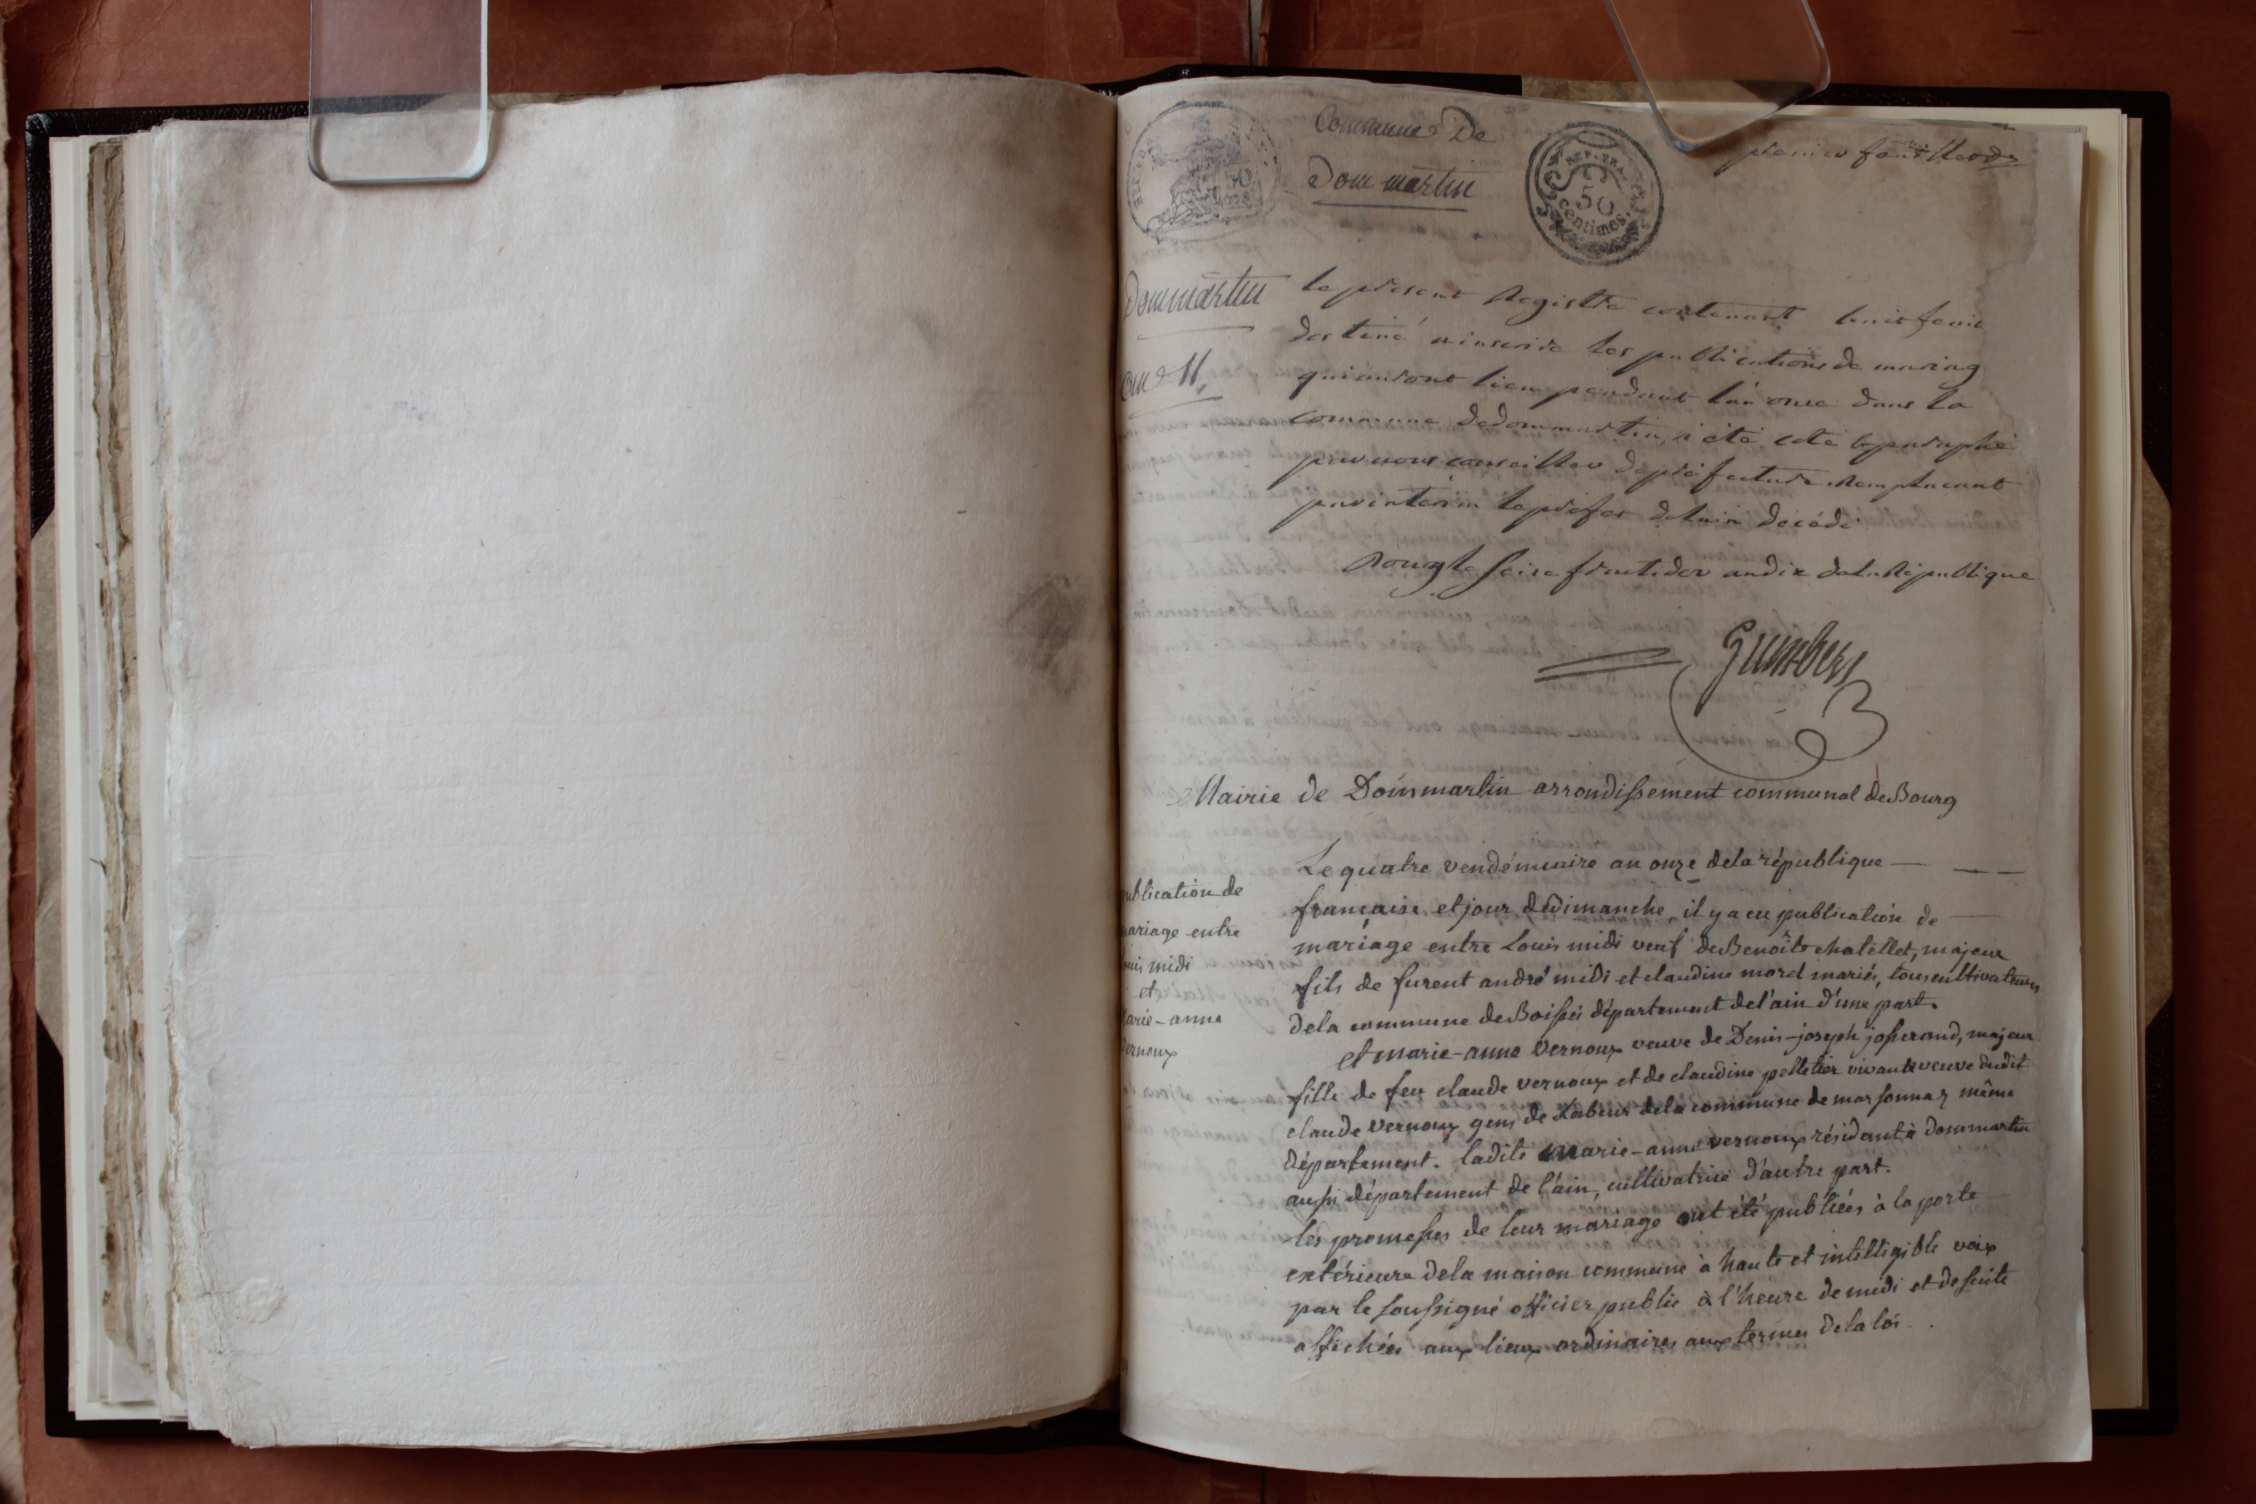 Commune De
Dommartin
REP. FRA.
50
centimes.
premier feuillet
Dommartin
an 11,
le présent Registre contenant huit feuil
destiné a inscrire les publications de mariag
qui auront lieu pendant l'an onze dans la
commune de dommartin, a été coté & paraphé
par nous conseiller de préfecture Remplacant
par interim le préfet de l'ain décédé
Bourg le seize fructidor an dix de la République
Mairie de Dommartin arrondissement communal de Bourg
Le quatre vendémiaire an onze de la république
française et jour de dimanche, il y a eu publication de
mariage entre Louis midi veuf de Benoîte chatellet, majeur
fils de furent andré midi et claudine morel mariés, tous cultivateurs
de la commune de Boissei département de l'ain d'une part.
et marie-anne vernoux veuve de Denis-joseph josserand, majeur
fille de feu claude vernoux et de claudine pelletier vivante veuve dudit
claude vernoux gens de Labeur de la commune de marsonnaz même
département. ladite marie-anne vernoux résidant à dommartin
aussi département de l'ain, cultivatrice d'autre part.
les promesses de leur mariage ont été publiées à la porte
extérieure de la maison commune à haute et intelligible voix
par le soussigné officier public à l'heure de midi et de suite
affichées aux lieux ordinaires aux termes de la loi.
ublication de
ariage entre
ouis midi
et
arie-anne
ernoux